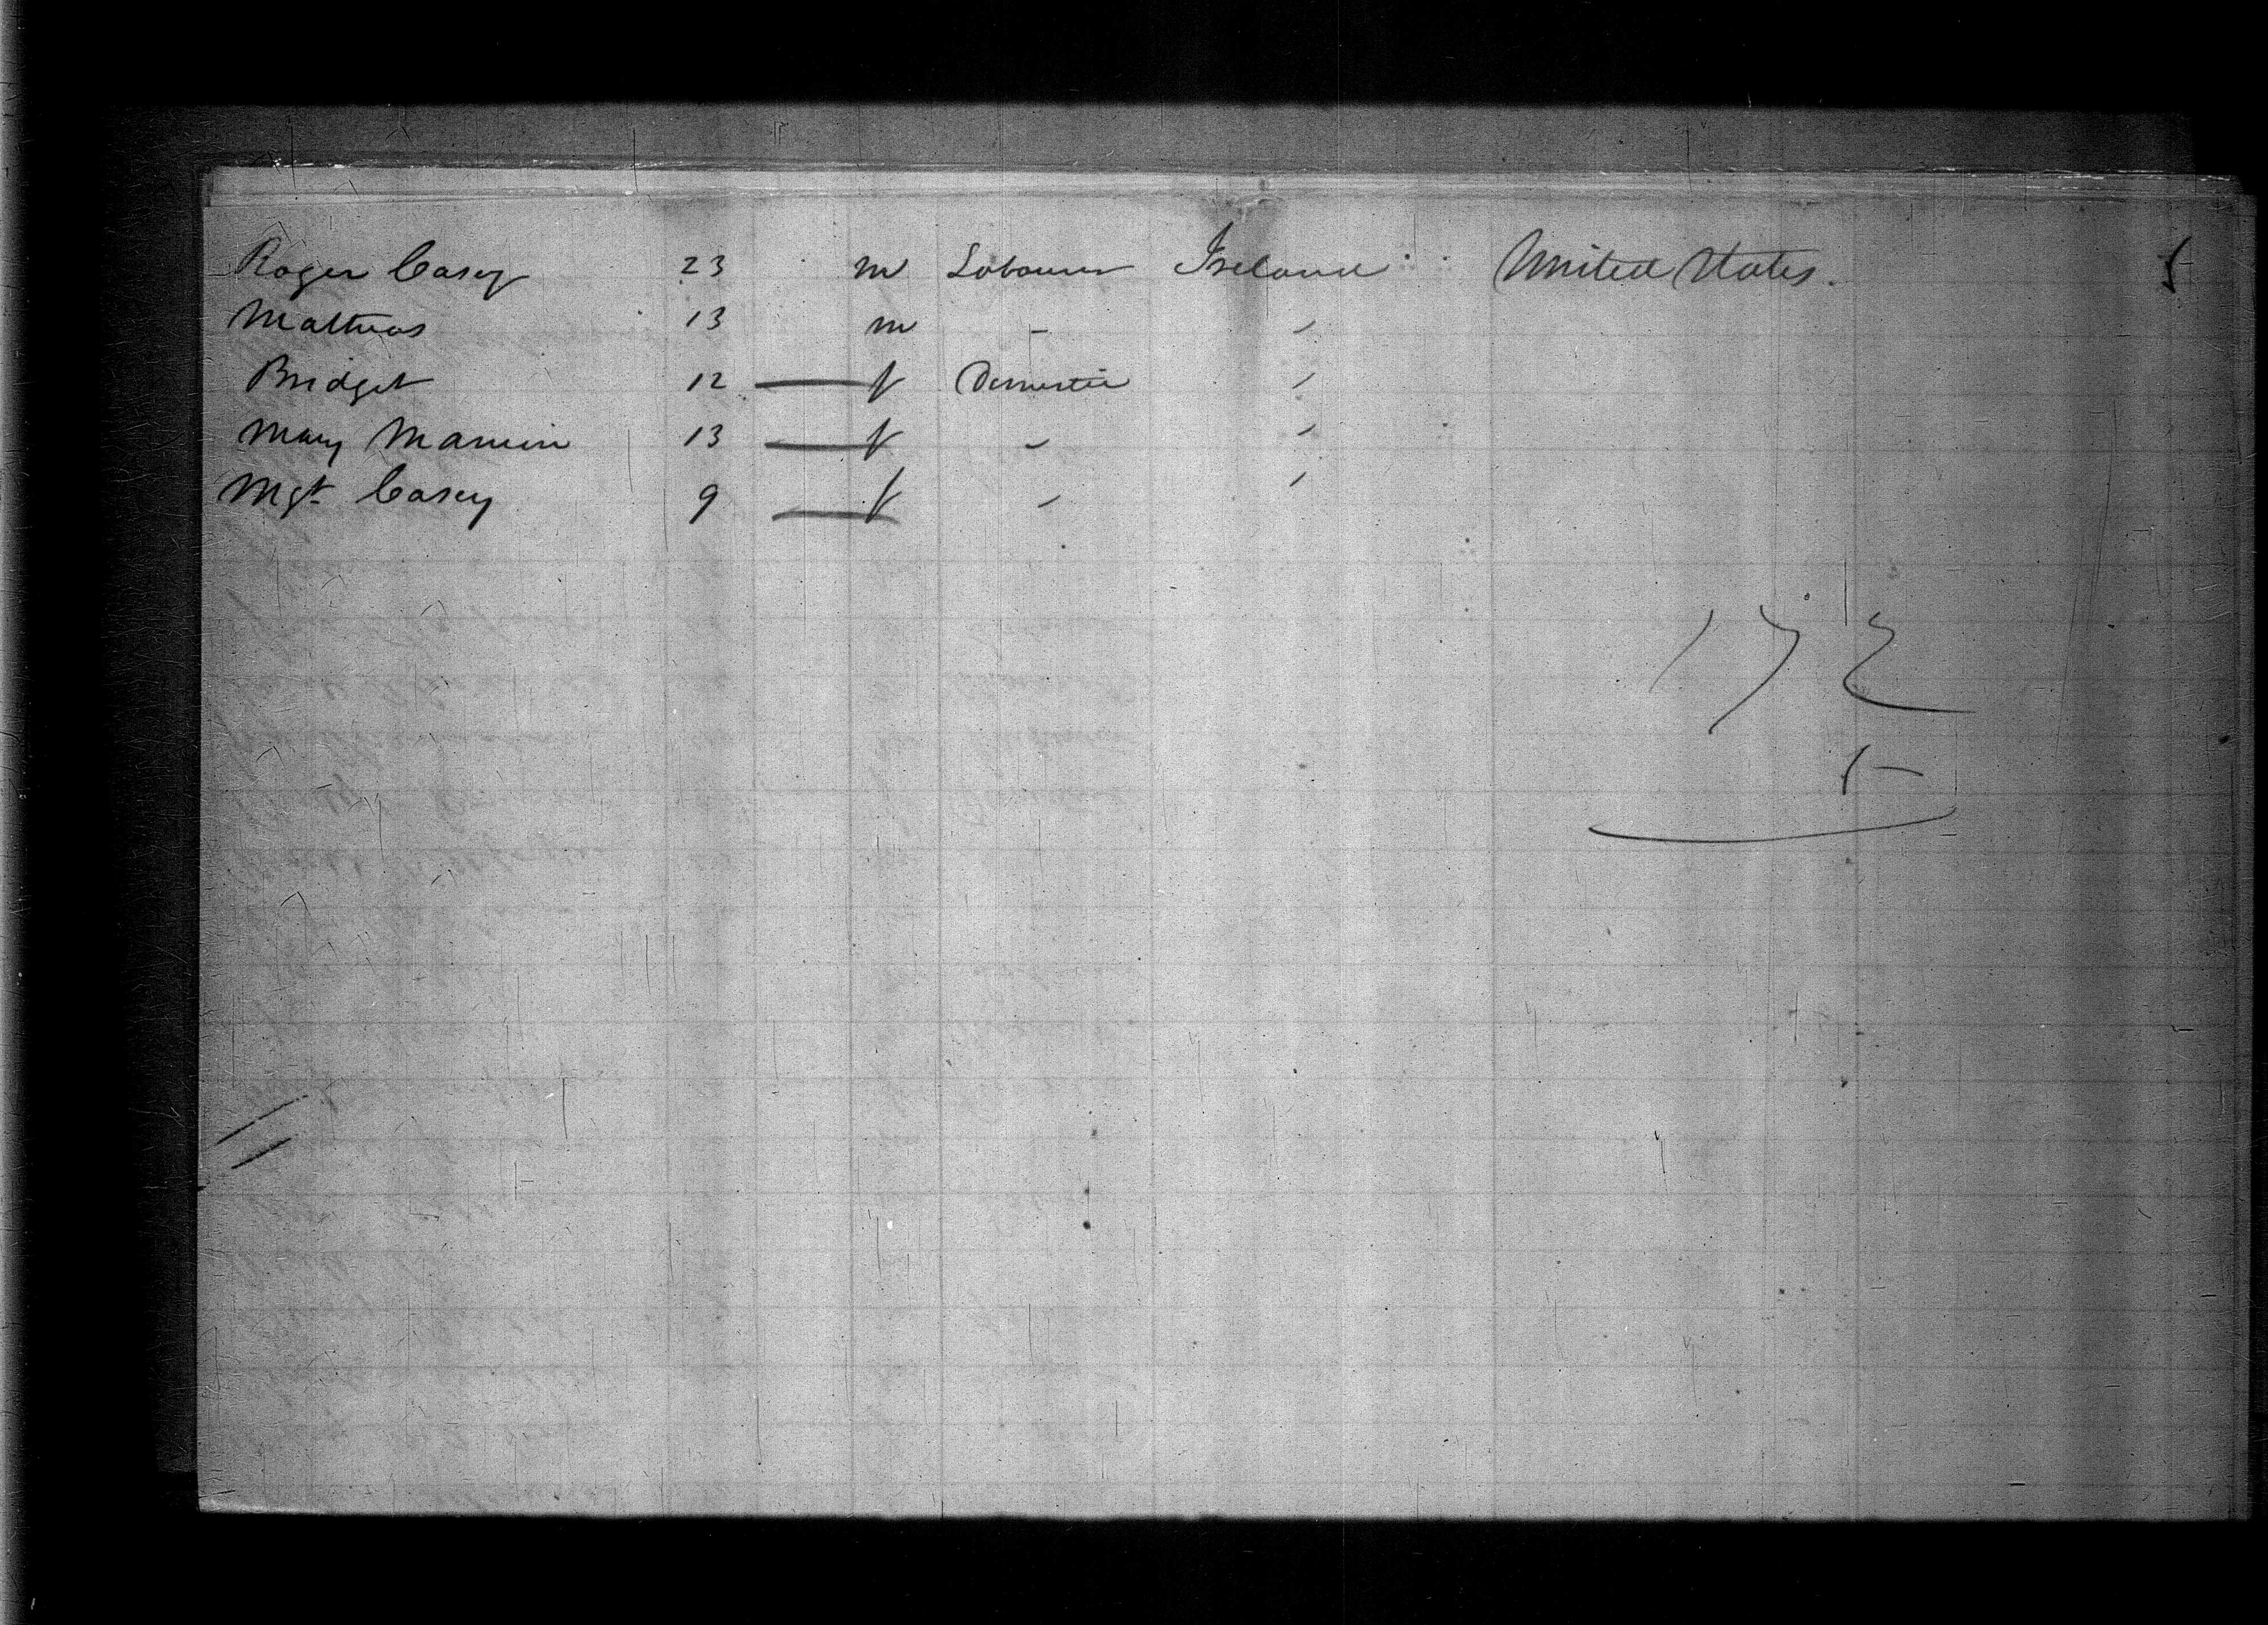 Roger Casey 23 m Labourer Ireland United States.
Mathias 13 m - "
Bridget 12 — f Domestic "
Mary 13 — f " "
Mgt Casey 9 — f " "
172
5